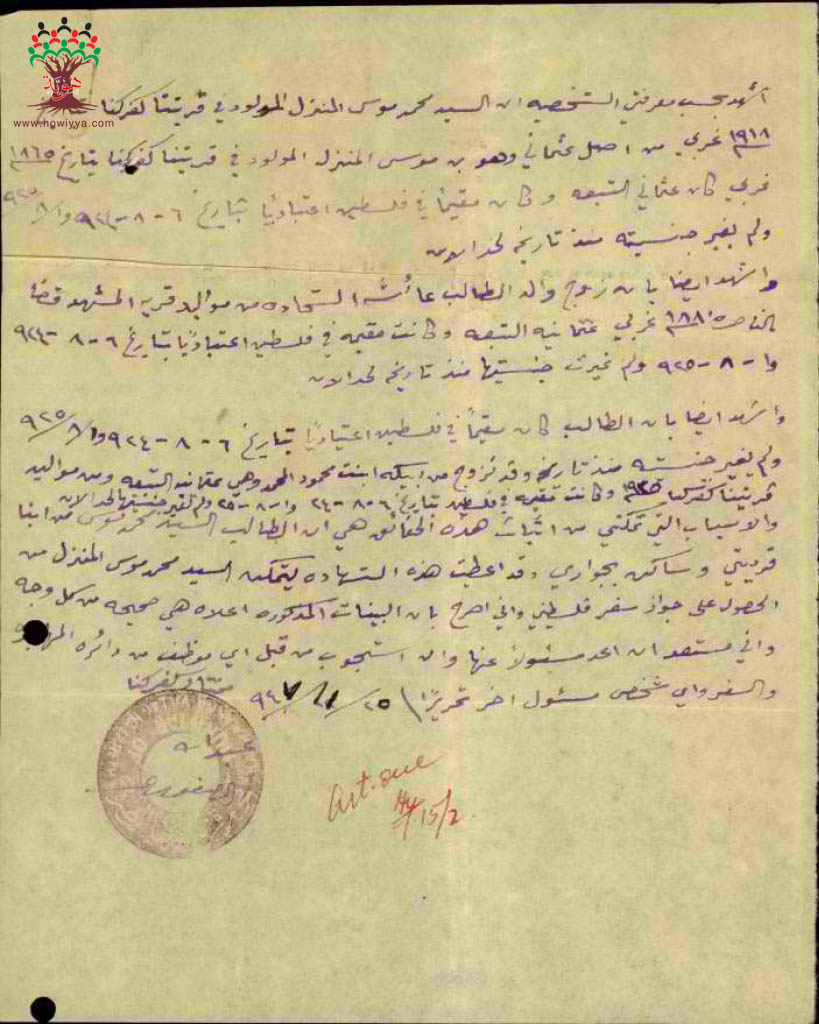 هوية
www.howiyya.com
اشهد بحسب معرفتي الشخصيه ان السيد محمد موسى المنزل المولود في قريتنا كفركنا
١٩١٨ غربي من اصل عثماني وهو بن موسى المنزل المولود في قريتنا كفركنا بتاريخ ١٨٦٥
غربي كان عثماني التبعه وكان مقيماً في فلسطين اعتيادياً بتاريخ ٦-٨-٩٢٤ و١/٨/٩٢٥
ولم يغير جنسيته منذ تاريخه لحد الان
واشهد ايضا بان زوج والد الطالب عائشه الشحاده من مواليد قريه المشهد قضا
الناصره ١٨٨١ غربي عثمانيه التبعه وكانت مقيمه في فلسطين اعتيادياً بتاريخ ٦-٨-٩٢٤
وا-٨-٩٢٥ ولم غيرت جنسيتها منذ تاريخه لحد الان
واشهد ايضا بان الطالب كان مقيماً في فلسطين اعتيادياً بتاريخ ٦-٨-٩٢٤ و١/٨/٩٢٥
ولم يغير جنسيته منذ تاريخه وقد تزوج من ابنت محمود المحمد وهي عثمانيه التبعه ومن مواليد
قريتنا كفركنا وكانت مقيمه في فلسطين بتاريخ ٦-٨-٢٤ وا-٨-٢٥ ولم تغير جنسيتها لحد الان
والاسباب التي تمكني من اثبات هذه الحقائق هي ان الطالب السيد محمد موسى من ابنا
قريتي وساكن بجواري وقد اعطيت هذه الشهاده ليتمكن السيد محمد موسى المنزل من
الحصول على جواز سفر فلسطيني واني اصرح بان البينات المذكوره اعلاه هي صحيحه من كل وجه
واني مستعد ان اعد مسئولاً عنها وان استجوب من قبل اي موظف من دائره المهاجره
والسفر واي شخص مسئول اخر تحريرًا ٢٥/١/٩٤٧
مختار كفركنا
15/2